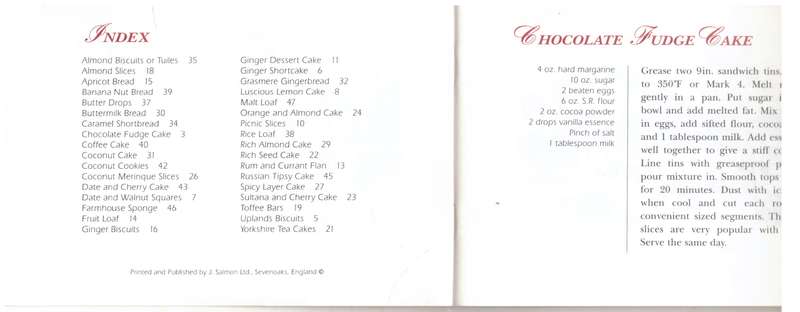 INDEX
Almond Biscuits or Tuiles 35
Almond Slices 18
Apricot Bread 15
Banana Nut Bread 39
Butter Drops 37
Buttermilk Bread 30
Caramel Shortbread 34
Chocolate Fudge Cake 3
Coffee Cake 40
Coconut Cake 31
Coconut Cookies 42
Coconut Meringue Slices 26
Date and Cherry Cake 43
Date and Walnut Squares 7
Farmhouse Sponge 46
Fruit Loaf 14
Ginger Biscuits 16
Ginger Dessert Cake 11
Ginger Shortcake 6
Grasmere Gingerbread 32
Luscious Lemon Cake 8
Malt Loaf 47
Orange and Almond Cake 24
Picnic Slices 10
Rice Loaf 38
Rich Almond Cake 29
Rich Seed Cake 22
Rum and Currant Flan 13
Russian Tipsy Cake 45
Spicy Layer Cake 27
Sultana and Cherry Cake 23
Toffee Bars 19
Uplands Biscuits 5
Yorkshire Tea Cakes 21
Printed and Published by J. Salmon Ltd., Sevenoaks, England ©
CHOCOLATE FUDGE CAKE
4 oz. hard margarine
10 oz. sugar
2 beaten eggs
6 oz. S.R. flour
2 oz. cocoa powder
2 drops vanilla essence
Pinch of salt
1 tablespoon milk
Grease two 9in. sandwich tins.
to 350°F or Mark 4. Melt
gently in a pan. Put sugar i
bowl and add melted fat. Mix
in eggs, add sifted flour, cocoa
and 1 tablespoon milk. Add ess
well together to give a stiff co
Line tins with greaseproof p
pour mixture in. Smooth tops
for 20 minutes. Dust with ic
when cool and cut each ro
convenient sized segments. Th
slices are very popular with
Serve the same day.